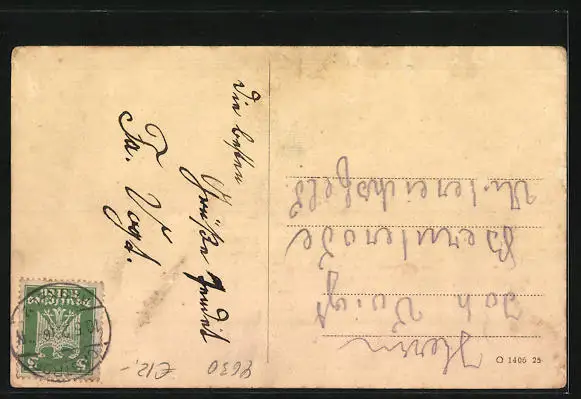 Die besten
Grüße sendet
Fa. Vogt.
Herrn
Joh Voigt
Bernterode
Untereichsfeld
O 1406 25
Deutsches
Reich
5
2630
€12,-